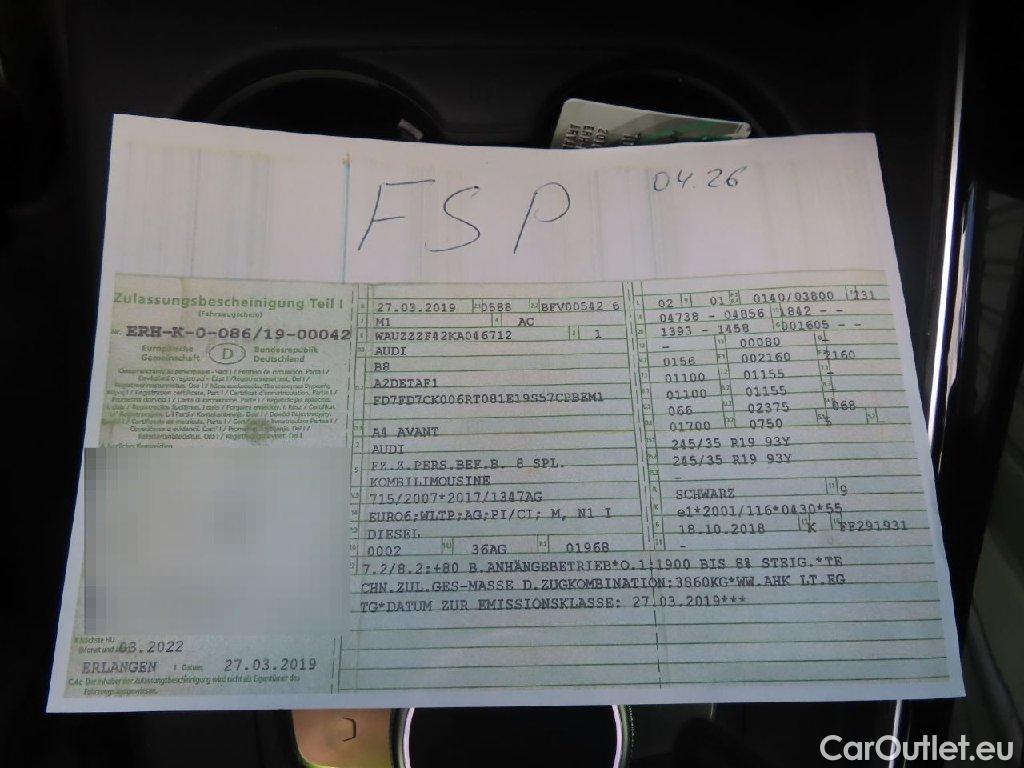 FSP
04.26
Zulassungsbescheinigung Teil I
(Fahrzeugschein)
Nr. ERH-K-0-086/19-00042
Europäische Gemeinschaft
D
Bundesrepublik Deutschland
03.2022
ERLANGEN
Datum
27.03.2019
C.4c Der Inhaber der Zulassungsbescheinigung wird nicht als Eigentümer des
Fahrzeugs ausgewiesen.
27.03.2019 0588 BFV00542 6
M1 AC
WAUZZZF42KA046712 1
AUDI
B8
A2DETAF1
FD7FD7CK006RT081E19S57CPBEM1
A4 AVANT
AUDI
FZ.Z.PERS.BEF.B. 8 SPL.
KOMBILIMOUSINE
715/2007*2017/1347AG
EURO6;WLTP;AG;PI/CI; M, N1 I
DIESEL
0002 36AG 01968
02 01 0140/03800 231
04738 - 04856 1842 - -
1393 - 1458 001605 - -
- 00080
0156 002160 2160
01100 01155 -
01100 01155 -
066 02375 068
01700 0750 5
245/35 R19 93Y
245/35 R19 93Y
-
SCHWARZ 9
e1*2001/116*0430*55
18.10.2018 K FF291931
-
7.2/8.2:+80 B.ANHÄNGEBETRIEB*O.1:1900 BIS 8% STEIG.*TE
CHN.ZUL.GES-MASSE D.ZUGKOMBINATION:3860KG*WW.AHK LT.EG
TG*DATUM ZUR EMISSIONSKLASSE: 27.03.2019***
CarOutlet.eu